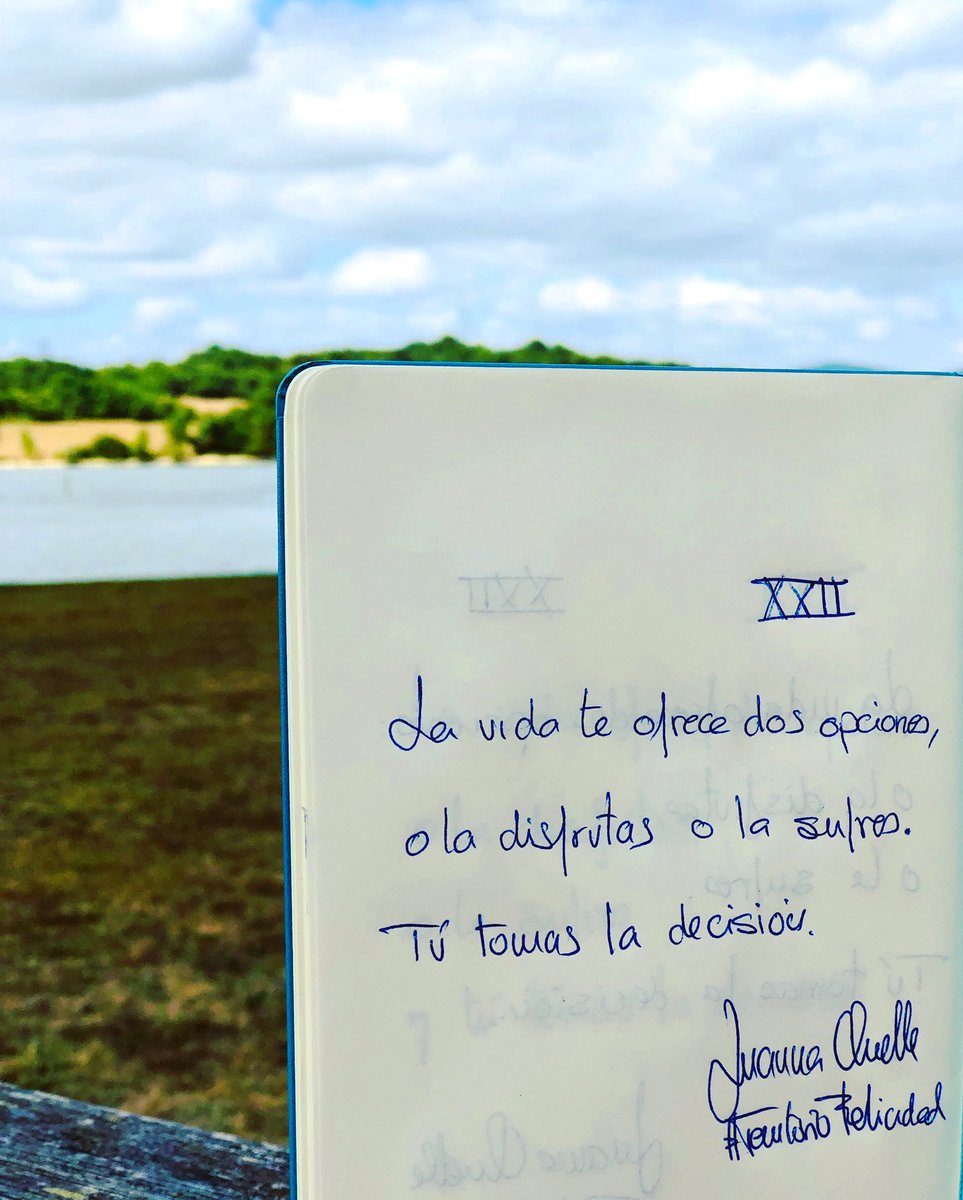 XXII
La vida te ofrece dos opciones,
o la disfrutas o la sufres.
Tú tomas la decisión.
Juanna Chelle
#TerritorioFelicidad